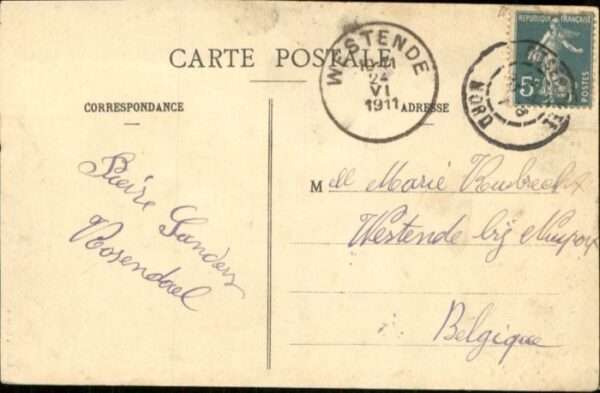 CARTE POSTALE
WESTENDE
24
VI
1911
REPUBLIQUE FRANÇAISE
5c
POSTES
NORD
CORRESPONDANCE
ADRESSE
Pierre Sanders
Rosendael
Mell Marie
Westende bij
Belgique